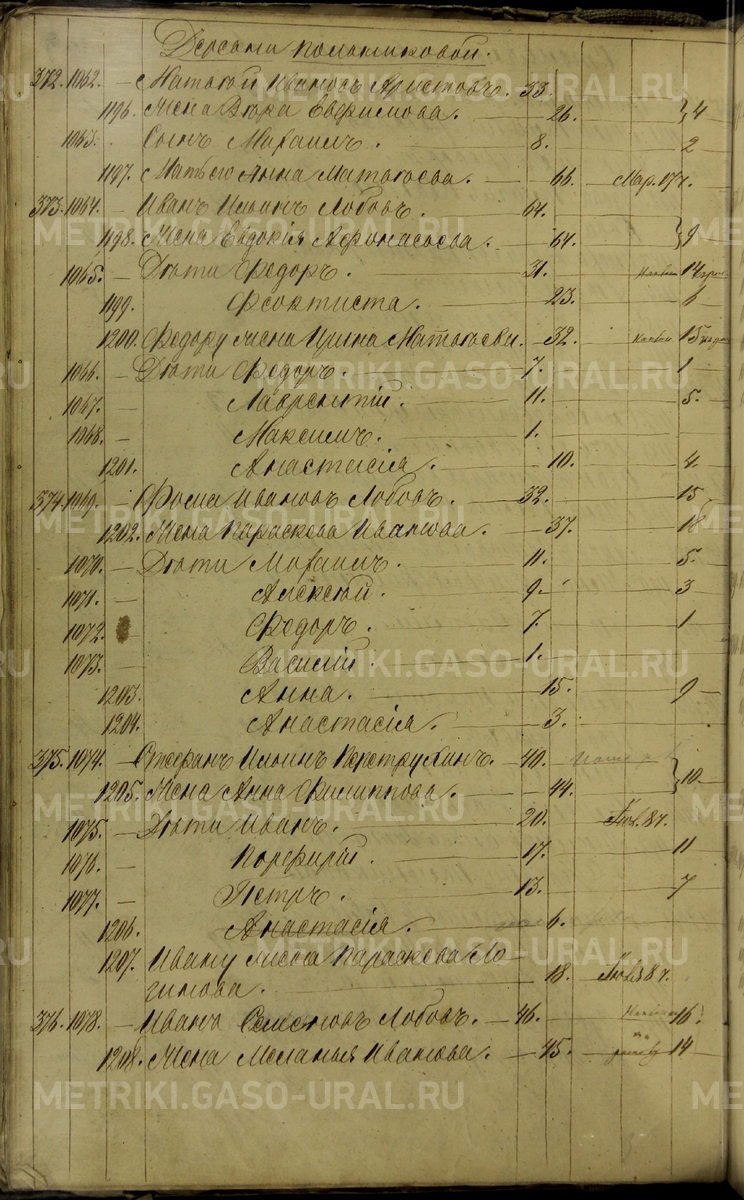 Деревни Коломиковой.
372. 1062. — Матвей Ивановъ Аристовъ. 33
1196. Жена Вѣра Евфимова. — 26. — 4
1063. Сынъ Михаилъ. 8. 2
1197. Мать его Анна Матвеева. — 66. — Мар. 17 ч.
373. 1064. — Иванъ Ильинъ Лобовъ. 64.
1198. Жена Евдокія Афонасьева. — 64. — 9
1065. — Дѣти Ѳедоръ. 31. 14
1199. Феоктиста. — 23. — 6
1200. Ѳедору жена Ирина Матвеева. — 32. — 15
1066. — Дѣти Ѳедоръ. 7. 1
1067. — Лаврентій. 11. 5.
1068. — Максимъ. 1.
1201. Анастасія. — 10. 4
374. 1069. — Фома Ивановъ Лобовъ. — 32. 15
1202. Жена Параскева Иванова. — 37. 18
1070. — Дѣти Михаилъ. 11. 5.
1071. — Алексѣй. 9. 3
1072. Ѳедоръ. 7. 1
1073. — Василій. 1.
1203. Анна. — 15. 9
1204. Анастасія. — 3.
375. 1074. — Стефанъ Ильинъ — 40.
1205. Жена Анна Филиппова. — 44. 10
1075. — Дѣти Иванъ. 20. 8 ч.
1076. — Порфирій. 17. 11
1077. — Петръ. 13. 7
1206. Анастасія. — 6.
1207. Ивану жена Параскева Ло
гинова. — 18. 8 ч.
376. 1078. — Иванъ Семеновъ Лобовъ. — 46. 16
1208. Жена Меланья Иванова. — 45. 14
METRIKI.GASO-URAL.RU